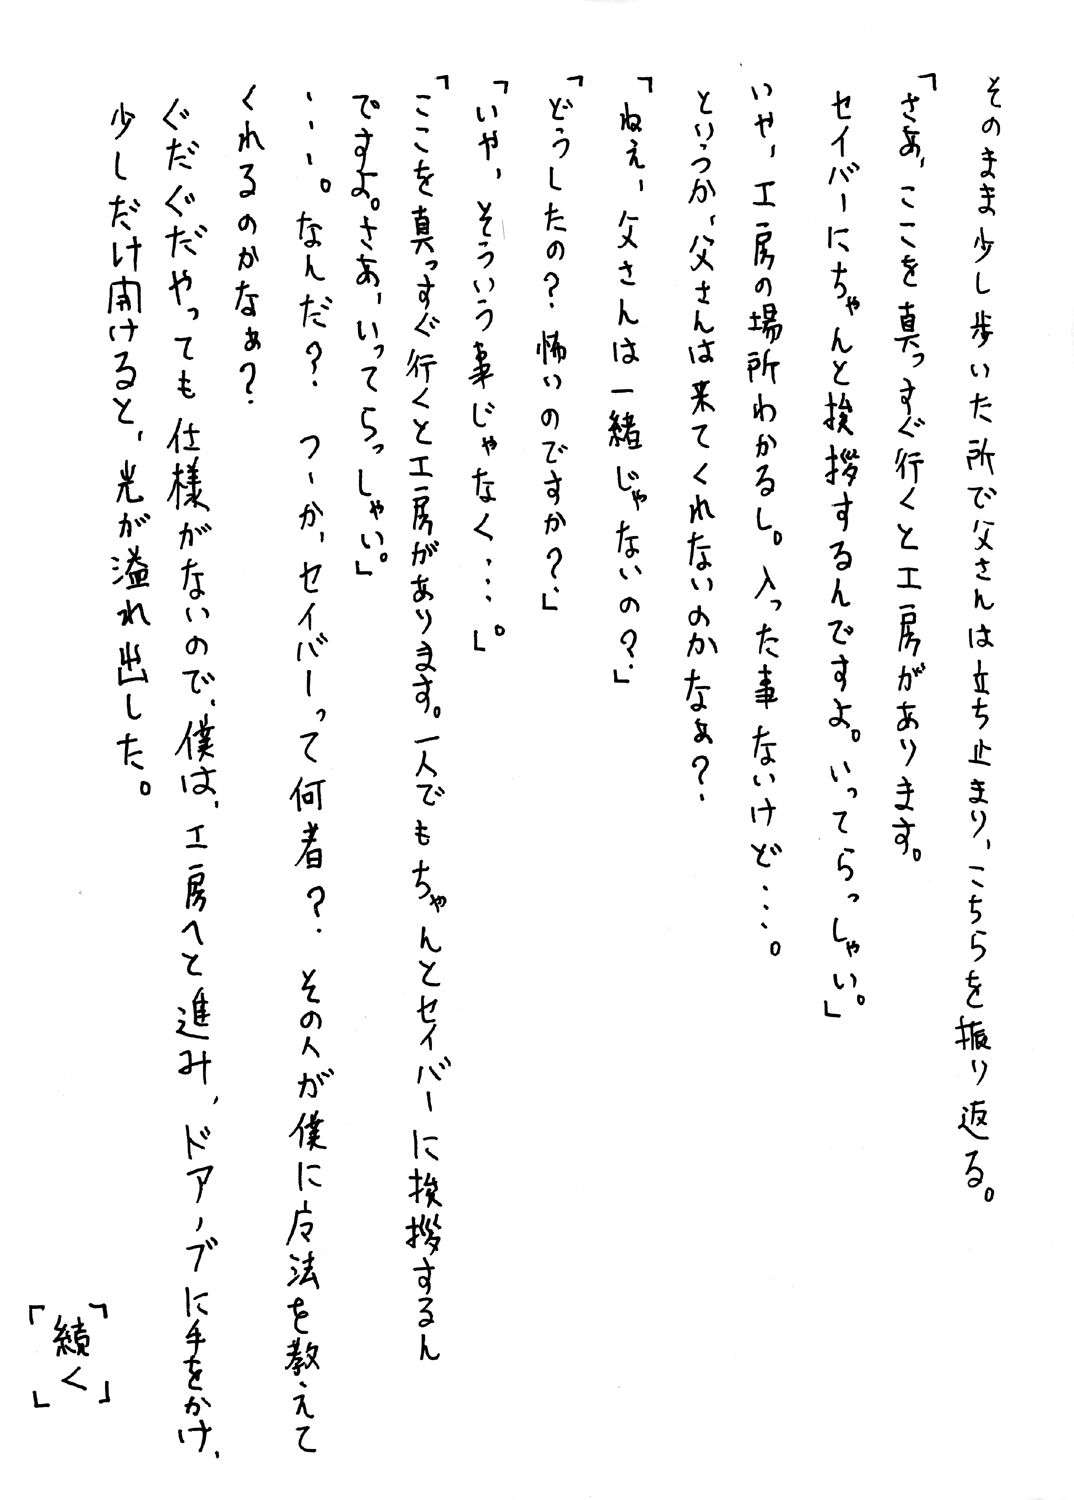 そのまま少し歩いた所で父さんは立ち止まり、こちらを振り返る。
「さあ、ここを真っすぐ行くと工房があります。
セイバーにちゃんと挨拶するんですよ。いってらっしゃい。」
いや、工房の場所わかるし。入った事ないけど・・・。
というか、父さんは来てくれないのかなぁ？
「ねぇ、父さんは一緒じゃないの？」
「どうしたの？怖いのですか？」
「いや、そういう事じゃなく・・・。」
「ここを真っすぐ行くと工房があります。一人でもちゃんとセイバーに挨拶するん
ですよ。さあ、いってらっしゃい。」
・・・。なんだ？　つーか、セイバーって何者？　その人が僕に魔法を教えて
くれるのかなぁ？
ぐだぐだやっても仕様がないので、僕は、工房へと進み、ドアノブに手をかけ、
少しだけ開けると、光が溢れ出した。
「続く」